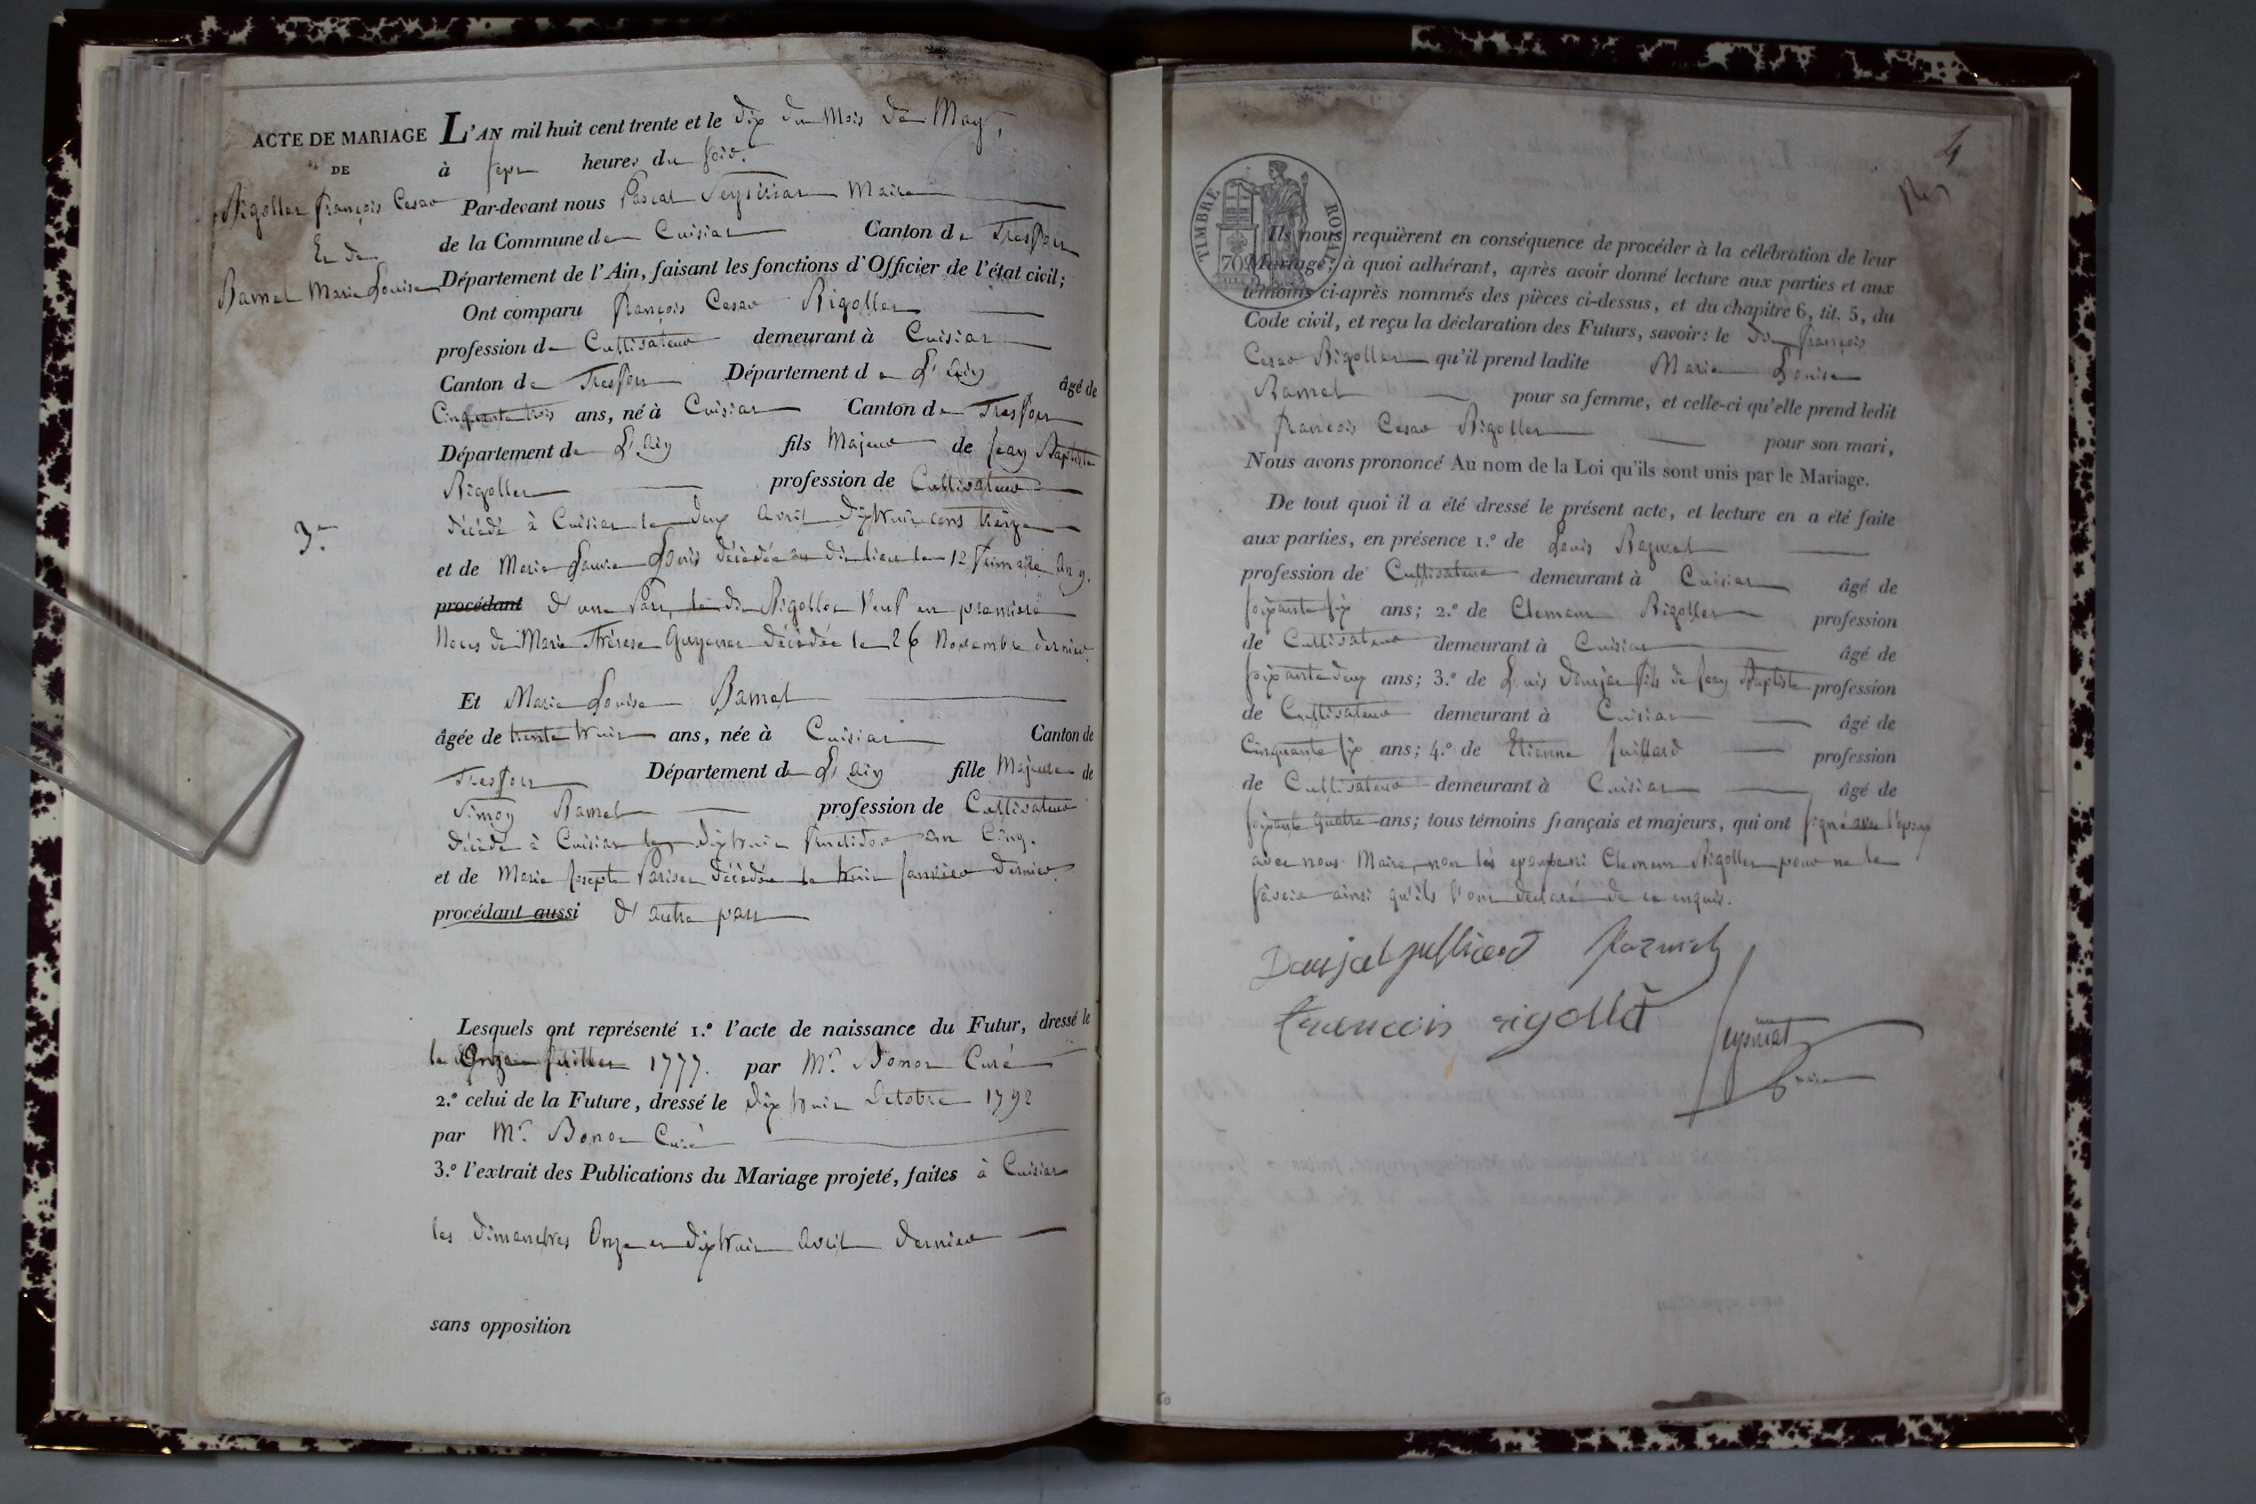 ACTE DE MARIAGE
DE
Rigollet françois Cesar
Et de
Bamet Marie Louise
3.e
L'AN mil huit cent trente et le dix du Mois de May,
à sept heures du soir.
Par-devant nous Pascal Seyssinat Maire
de la Commune de Cuisiat Canton de Tressort
Département de l'Ain, faisant les fonctions d'Officier de l'état civil;
Ont comparu françois Cesar Rigollet
profession de Cultivateur demeurant à Cuisiat
Canton de Tressort Département de L'Ain âgé de
Cinquante trois ans, né à Cuisiat Canton de Tressort
Département de L'Ain fils Majeur de Jean Baptiste
Rigollet profession de Cultivateur
décédé à Cuisiat le deux avril dix huit cens treize
et de Marie Louis décédée au dit lieu le 12 frimaire an 9.
procédant d'une part, le dit Rigollet Veuf en première
Noces de Marie Thérese Guyennet décédée le 26 Novembre dernier.
Et Marie Louise Bamet
âgée de trente huit ans, née à Cuisiat Canton de
Tressort Département de L'Ain fille Majeure de
Simon Bamet profession de Cultivateur
décédé à Cuisiat le dix huit fructidor an Cinq.
et de Marie Josepte Pariset décédée le huit Janvier dernier.
procédant aussi d'autre part
Lesquels ont représenté 1.º l'acte de naissance du Futur, dressé le
le Onze Juillet 1777. par Mr. Bonot Curé
2.º celui de la Future, dressé le dix huit Octobre 1792
par Mr. Bonot Curé
3.º l'extrait des Publications du Mariage projeté, faites à Cuisiat
les dimanches Onze et dix huit avril dernier
sans opposition
4
TIMBRE ROYAL
70
Ils nous requièrent en conséquence de procéder à la célébration de leur
Mariage; à quoi adhérant, après avoir donné lecture aux parties et aux
témoins ci-après nommés des pièces ci-dessus, et du chapitre 6, tit. 5, du
Code civil, et reçu la déclaration des Futurs, savoir: le dit françois
Cesar Rigollet qu'il prend ladite Marie Louise
Bamet pour sa femme, et celle-ci qu'elle prend ledit
françois Cesar Rigollet pour son mari,
Nous avons prononcé Au nom de la Loi qu'ils sont unis par le Mariage.
De tout quoi il a été dressé le présent acte, et lecture en a été faite
aux parties, en présence 1.º de Louis Razurel
profession de Cultivateur demeurant à Cuisiat âgé de
soixante six ans; 2.º de Clement Rigollet profession
de Cultivateur demeurant à Cuisiat âgé de
soixante deux ans; 3.º de Louis Daujat fils de Jean Baptiste profession
de Cultivateur demeurant à Cuisiat âgé de
Cinquante six ans; 4.º de Etienne Juillard profession
de Cultivateur demeurant à Cuisiat âgé de
soixante quatre ans; tous témoins français et majeurs, qui ont signé avec l'époux
avec nous Maire, non les épouse ni Clement Rigollet pour ne le
savoir ainsi qu'ils l'ont déclaré de ce enquis.
Daujat Julliard Razurel
francois rigollet
Seyssinat
maire